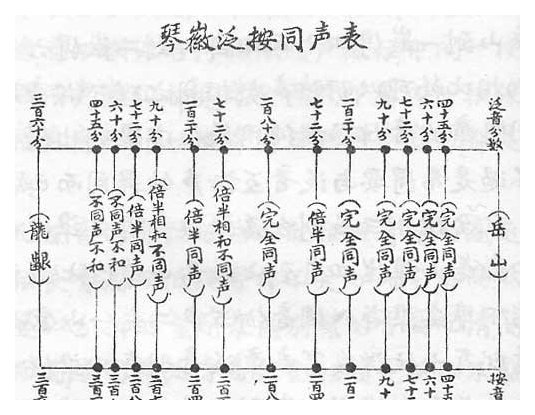 琴徽泛按同声表
泛音分数
四十五分
六十分
七十二分
九十分
一百二十分
七十二分
一百八分
七十二分
一百二十分
九十分
七十二分
六十分
四十五分
三百六十分
(岳山)
(完全同声)
(完全同声)
(完全同声)
(完全同声)
(完全同声)
(倍半同声)
(完全同声)
(倍半相和不同声)
(倍半同声)
(倍半相和不同声)
(倍半同声)
(不同声不和)
(不同声不和)
(龍齦)
按音
四十五
六十
七十二
九十
一百二
一百四
一百八
二百四
二百七
二百八
三百
三百
三百